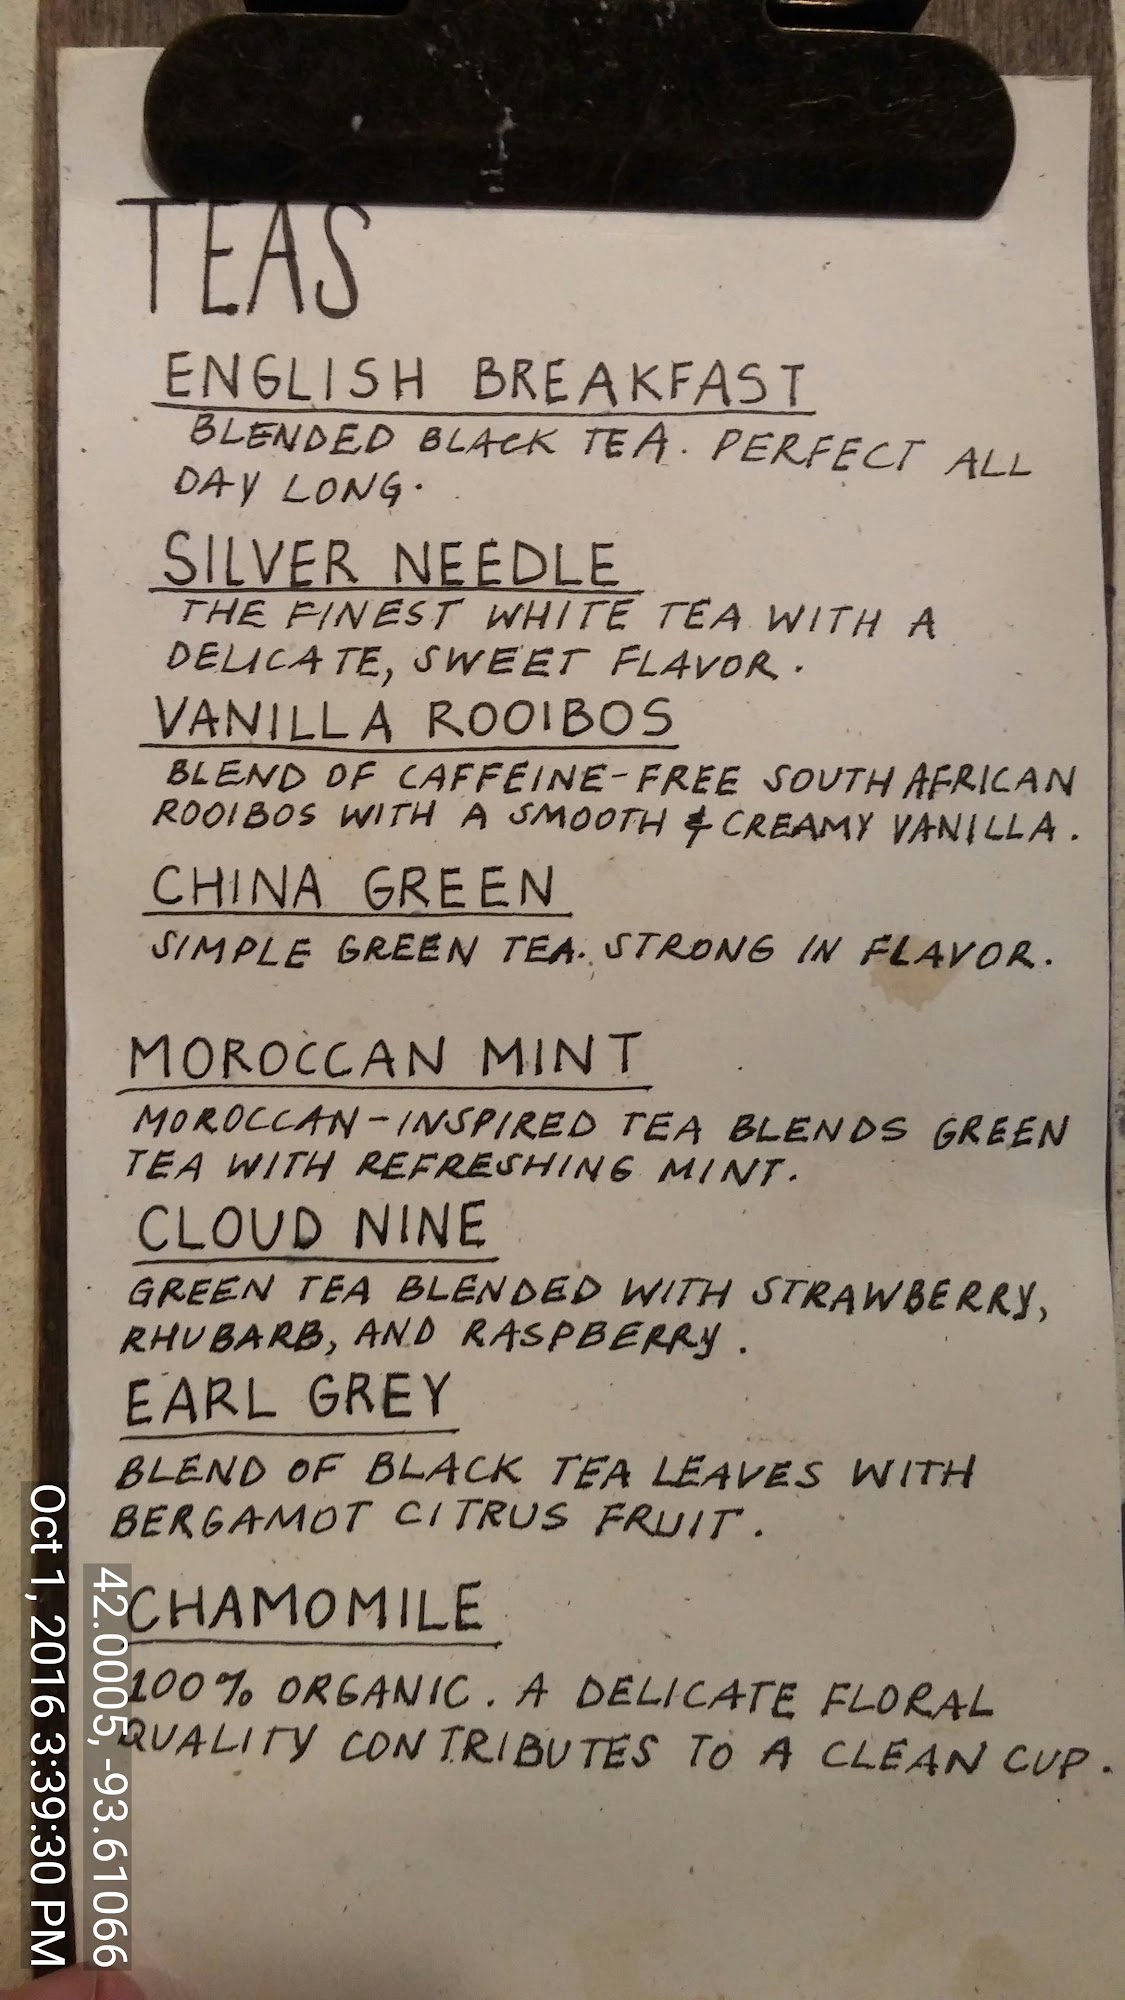 TEAS
ENGLISH BREAKFAST
BLENDED BLACK TEA. PERFECT ALL
DAY LONG.
SILVER NEEDLE
THE FINEST WHITE TEA WITH A
DELICATE, SWEET FLAVOR.
VANILLA ROOIBOS
BLEND OF CAFFEINE-FREE SOUTH AFRICAN
ROOIBOS WITH A SMOOTH & CREAMY VANILLA.
CHINA GREEN
SIMPLE GREEN TEA. STRONG IN FLAVOR.
MOROCCAN MINT
MOROCCAN-INSPIRED TEA BLENDS GREEN
TEA WITH REFRESHING MINT.
CLOUD NINE
GREEN TEA BLENDED WITH STRAWBERRY,
RHUBARB, AND RASPBERRY.
EARL GREY
BLEND OF BLACK TEA LEAVES WITH
BERGAMOT CITRUS FRUIT.
CHAMOMILE
100% ORGANIC. A DELICATE FLORAL
QUALITY CONTRIBUTES TO A CLEAN CUP.
42.0005, -93.61066
Oct 1, 2016 3:39:30 PM